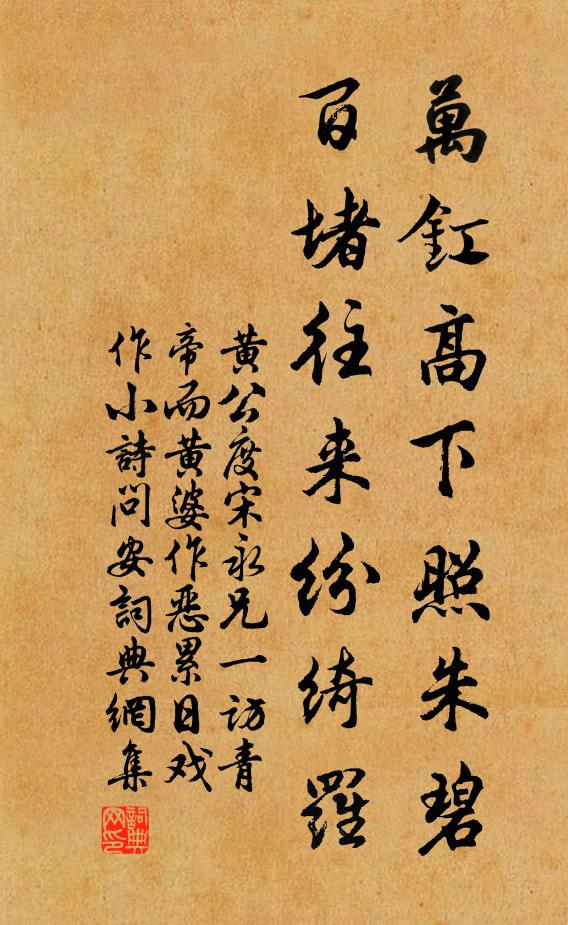 萬釭高下照朱碧
百堵往来紛綺羅
黄公度宋永兄一訪青
帝而黄婆作惡累日戏
作小詩問安詞典網集
詞典网印